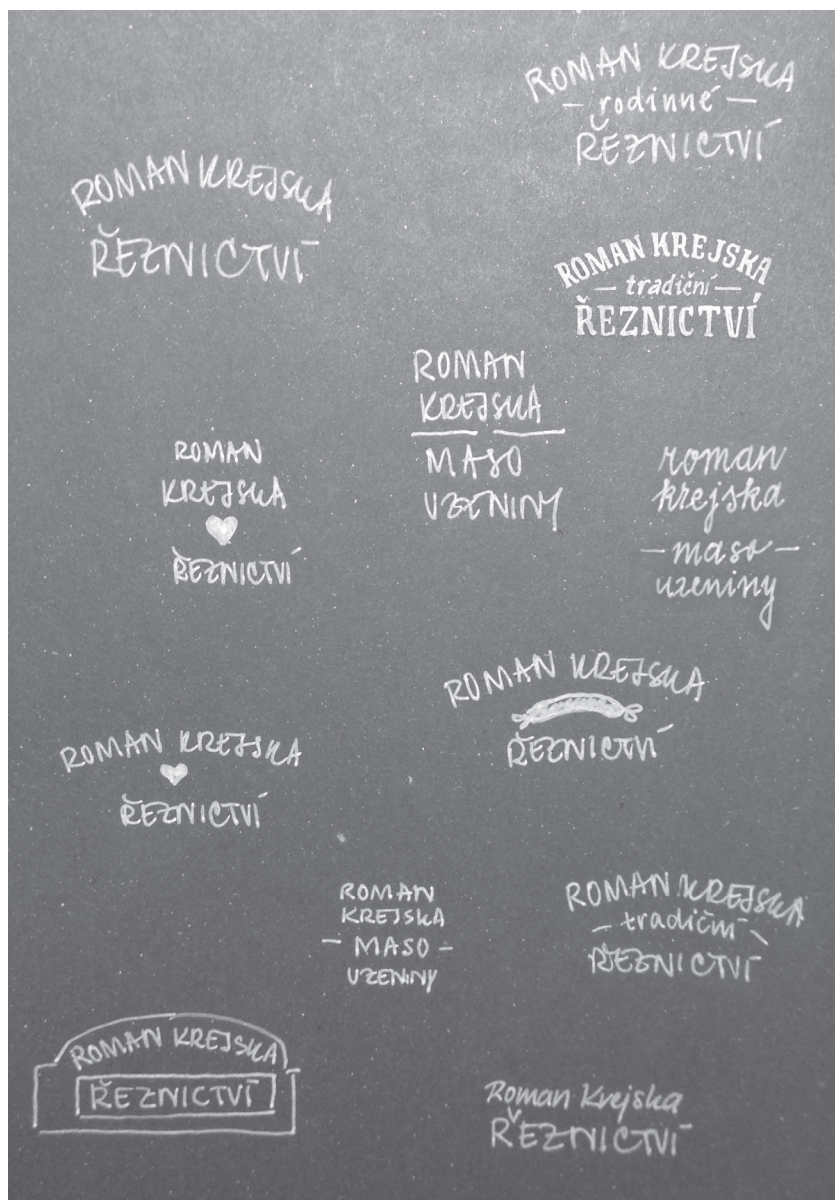 ROMAN KREJSKA
rodinné
ŘEZNICTVÍ
ROMAN KREJSKA
ŘEZNICTVÍ
ROMAN KREJSKA
tradiční
ŘEZNICTVÍ
ROMAN
KREJSKA
MASO
UZENINY
ROMAN
KREJSKA
ŘEZNICTVÍ
roman
krejska
maso
uzeniny
ROMAN KREJSKA
ŘEZNICTVÍ
ROMAN KREJSKA
ŘEZNICTVÍ
ROMAN
KREJSKA
MASO
UZENINY
ROMAN KREJSKA
tradiční
ŘEZNICTVÍ
ROMAN KREJSKA
ŘEZNICTVÍ
Roman Krejska
ŘEZNICTVÍ